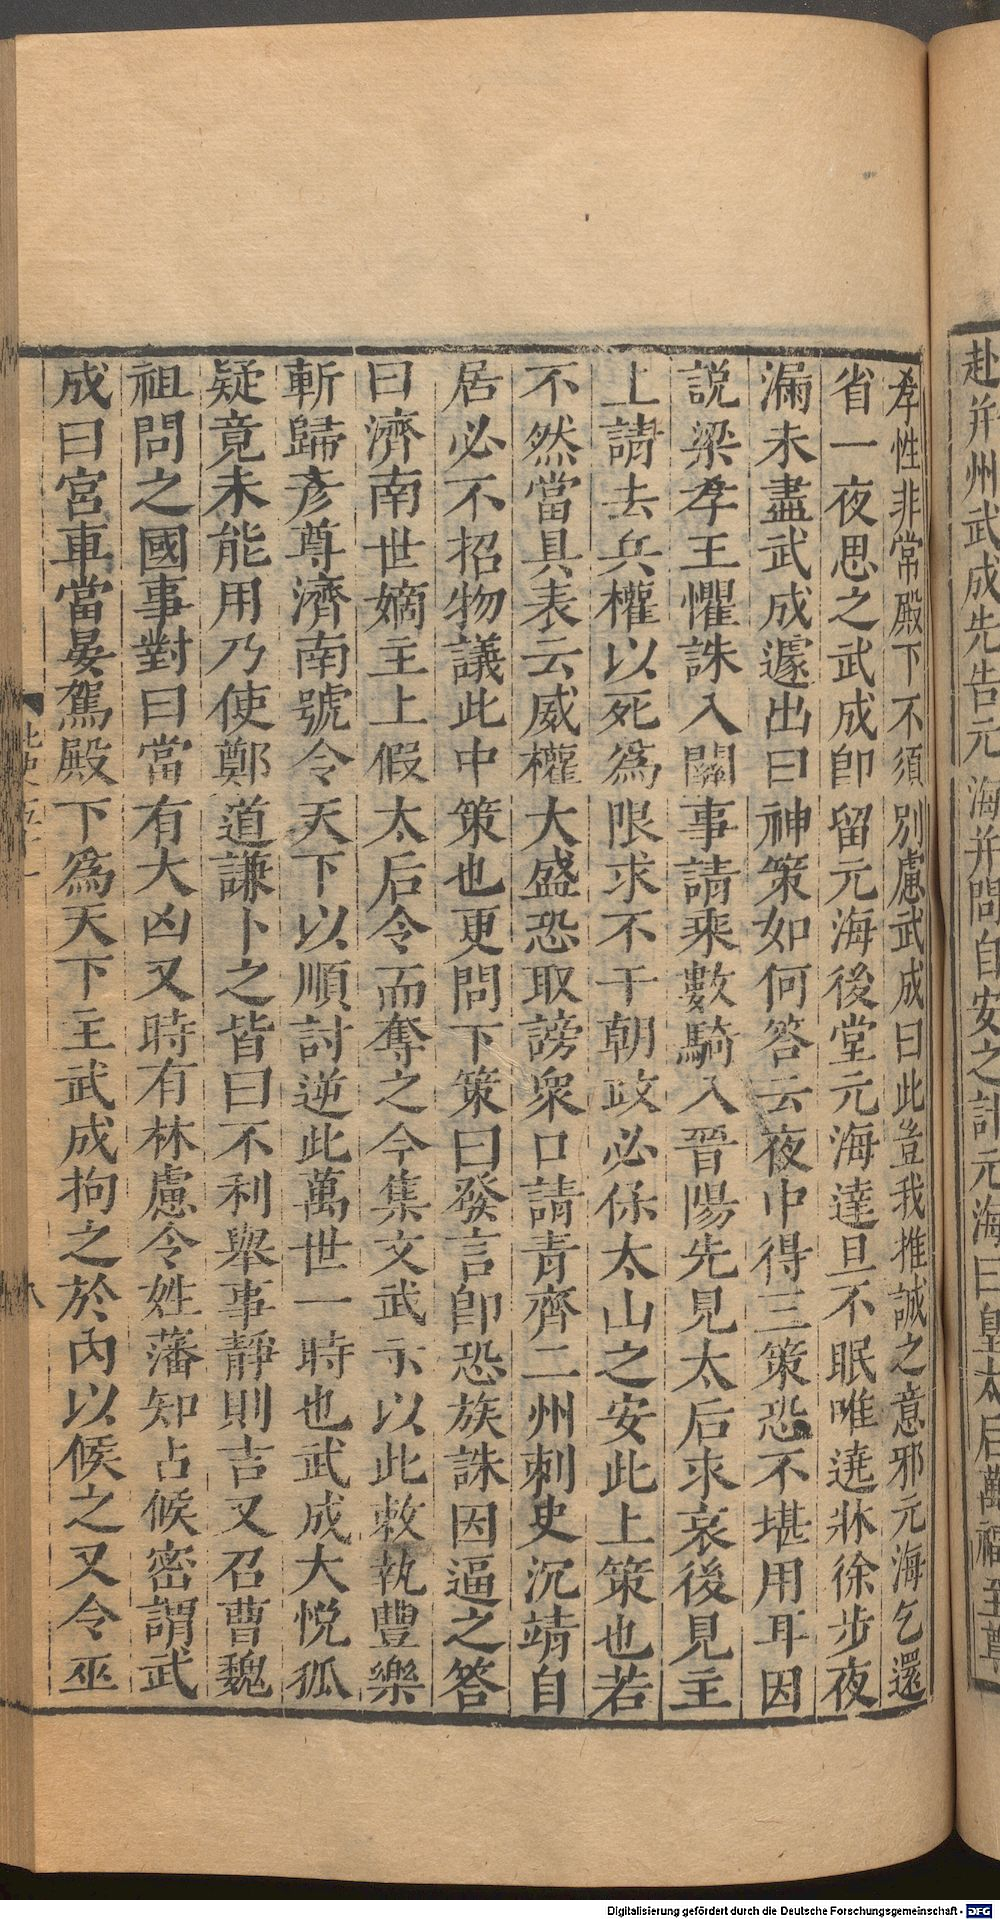 赴并州武成先告元海并問自安之計元海曰皇太后萬福至尊
孝性非常殿下不須別慮武成曰此豈我推誠之意邪元海乞還
省一夜思之武成即留元海後堂元海達旦不眠唯遶牀徐步夜
漏未盡武成遽出曰神策如何答云夜中得三策恐不堪用耳因
說梁孝王懼誅入關事請乘數騎入晉陽先見太后求哀後見主
上請去兵權以死為限求不干朝政必保太山之安此上策也若
不然當具表云威權大盛恐取謗衆口請青齊二州刺史沉靖自
居必不招物議此中策也更問下策曰發言即恐族誅因逼之答
曰濟南世嫡主上假太后令而奪之今集文武示以此敕執豐樂
斬歸彥尊濟南號令天下以順討逆此萬世一時也武成大悅狐
疑竟未能用乃使鄭道謙卜之皆曰不利舉事靜則吉又召曹魏
祖問之國事對曰當有大凶又時有林慮令姓藩知占候密謂武
成曰宮車當晏駕殿下為天下主武成拘之於內以候之又令巫
Digitalisierung gefördert durch die Deutsche Forschungsgemeinschaft - DFG